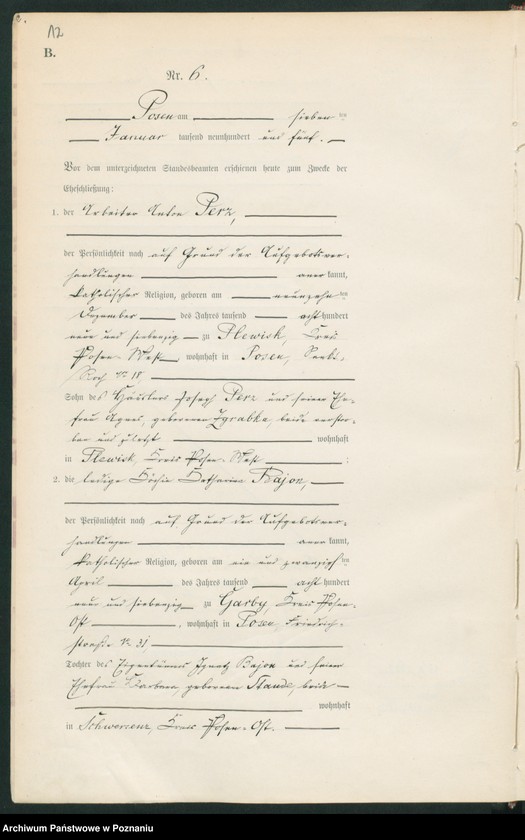 12
B.
Nr. 6.
Posen am sieben ten
Januar tausend neunhundert und fünf.
Vor dem unterzeichneten Standesbeamten erschienen heute zum Zwecke der
Eheschließung:
1. der Arbeiter Anton Perz,
der Persönlichkeit nach auf Grund der Aufgebotsver-
handlungen anerkannt,
katholischer Religion, geboren am neunzehn ten
Dezember des Jahres tausend acht hundert
neun und siebenzig zu Plewisk, Kreis
Posen West, wohnhaft in Posen,
No 18,
Sohn des Häuslers Joseph Perz und seiner Ehe-
frau Agnes, geborenen Zgrabka, beide verstor-
ben und zuletzt wohnhaft
in Plewisk, Kreis Posen-West ;
2. die ledige Köchin Catharina Bajon,
der Persönlichkeit nach auf Grund der Aufgebotsver-
handlungen anerkannt,
katholischer Religion, geboren am ein und zwanzigsten
April des Jahres tausend acht hundert
neun und siebenzig zu Garby, Kreis Posen-
Ost, wohnhaft in Posen, Friedrich-
straße No 31,
Tochter des Eigentümers Ignatz Bajon und seiner
Ehefrau Barbara, geborenen Staude, beide
wohnhaft
in Schwersenz, Kreis Posen-Ost.
Archiwum Państwowe w Poznaniu